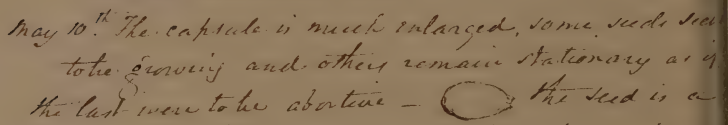 May 10th. The capsule is much enlarged, some seeds seem
to be growing and others remain stationary as if
the last were to be abortive — the seed is a